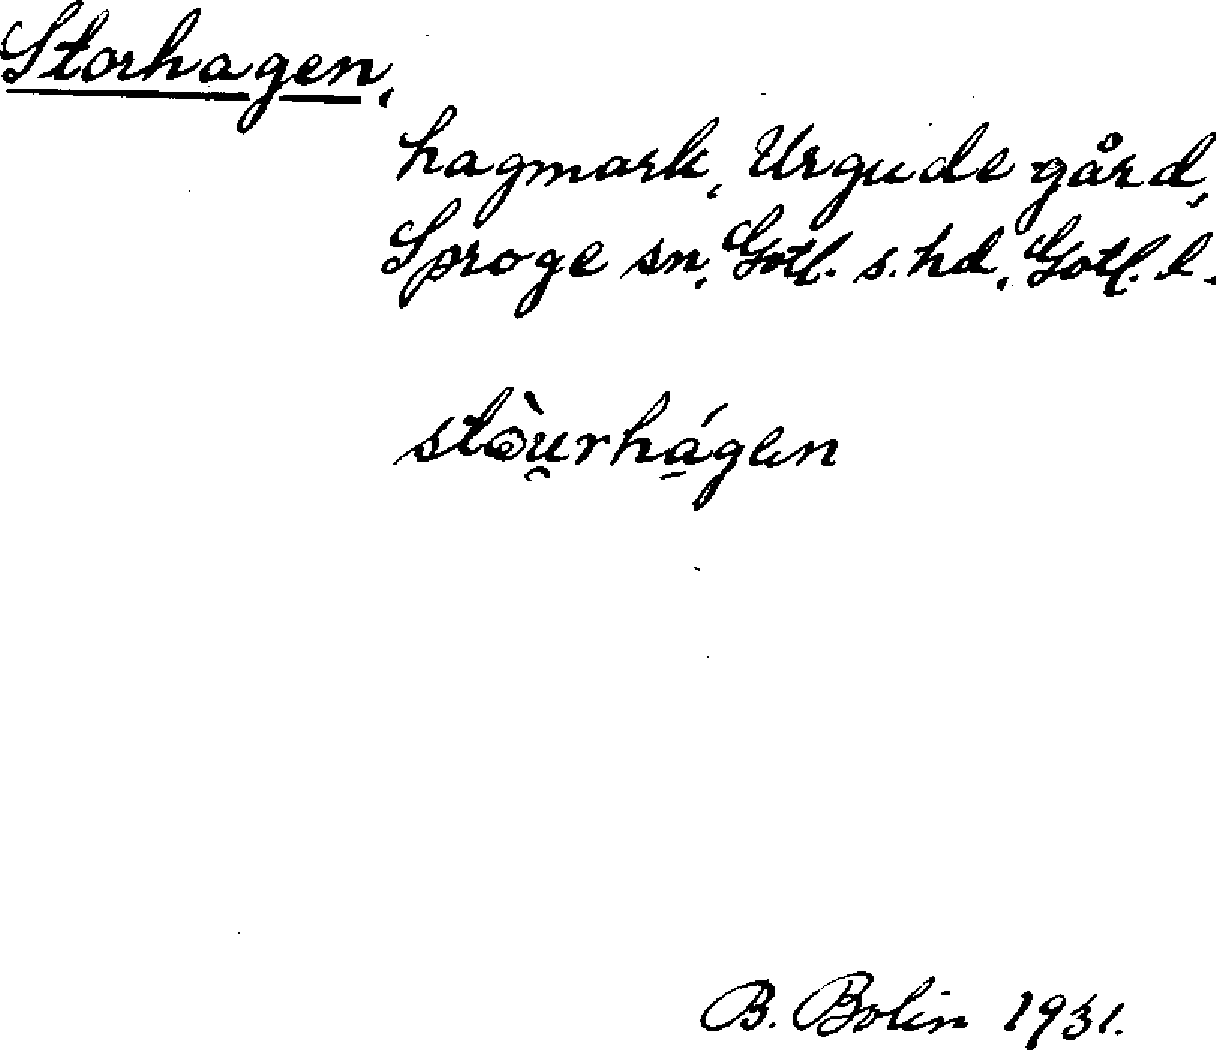 Storhagen,
hagmark, Urgude gård,
Sproge sn, Gotl. s. hd, Gotl. l.
stɷ̀u̯rhá̱gen
B. Bolin 1931.